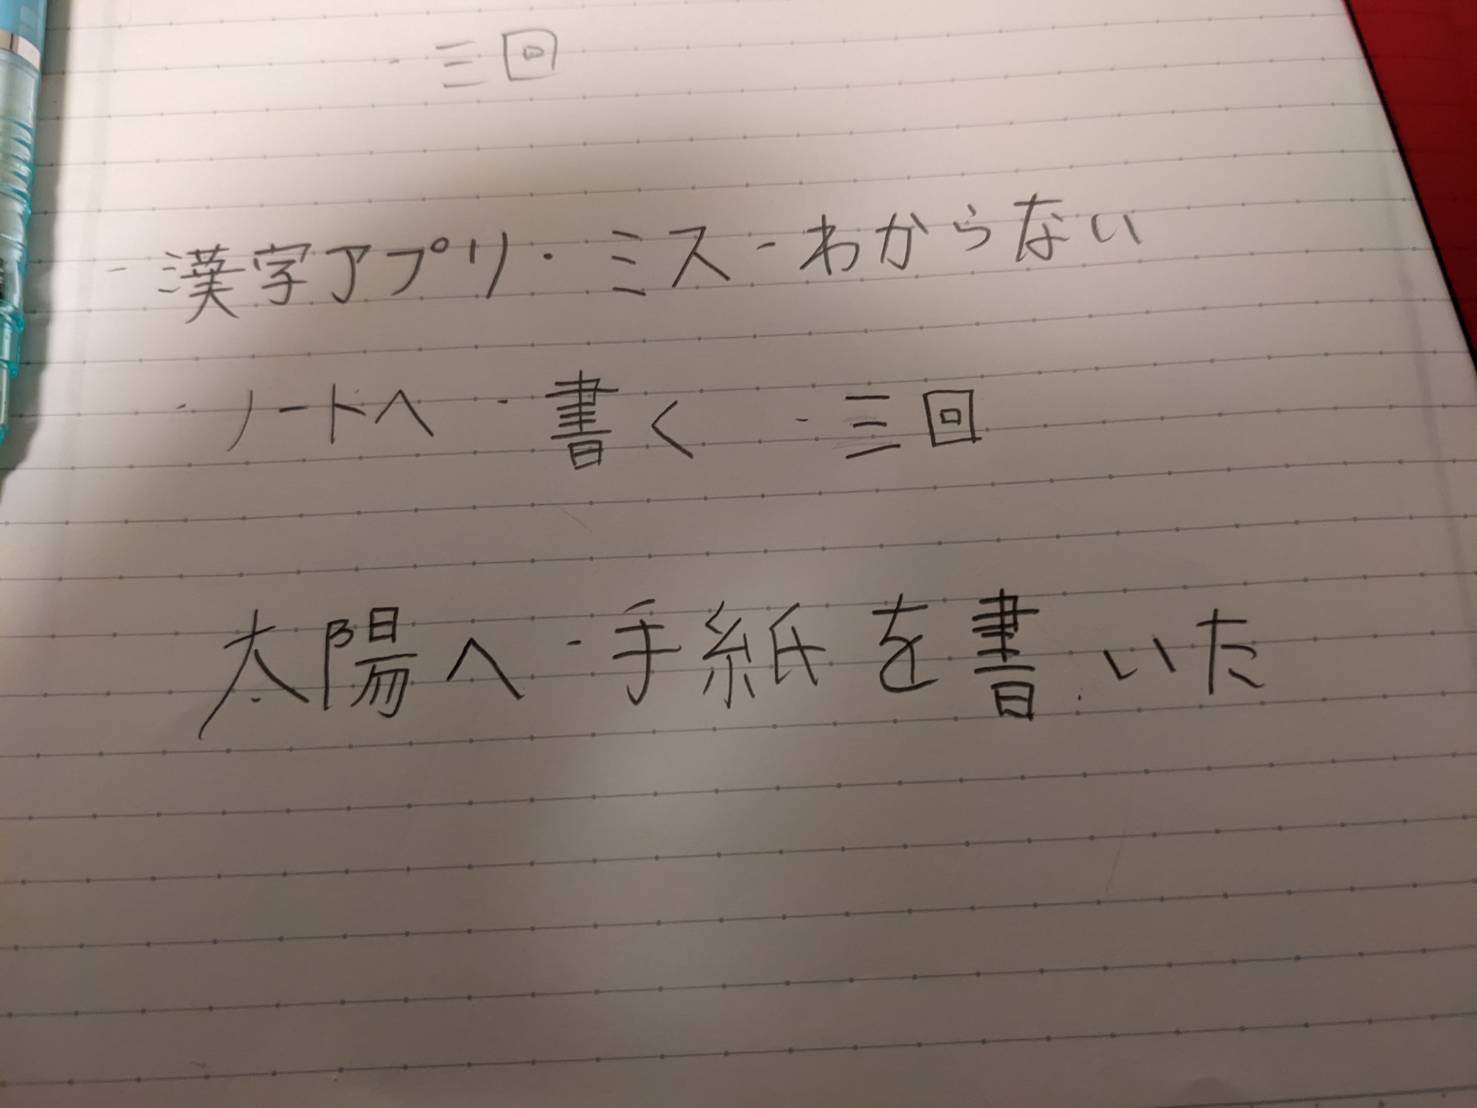 ・三回
・漢字アプリ・ミス・わからない
・ノートへ・書く・三回
太陽へ・手紙を書いた